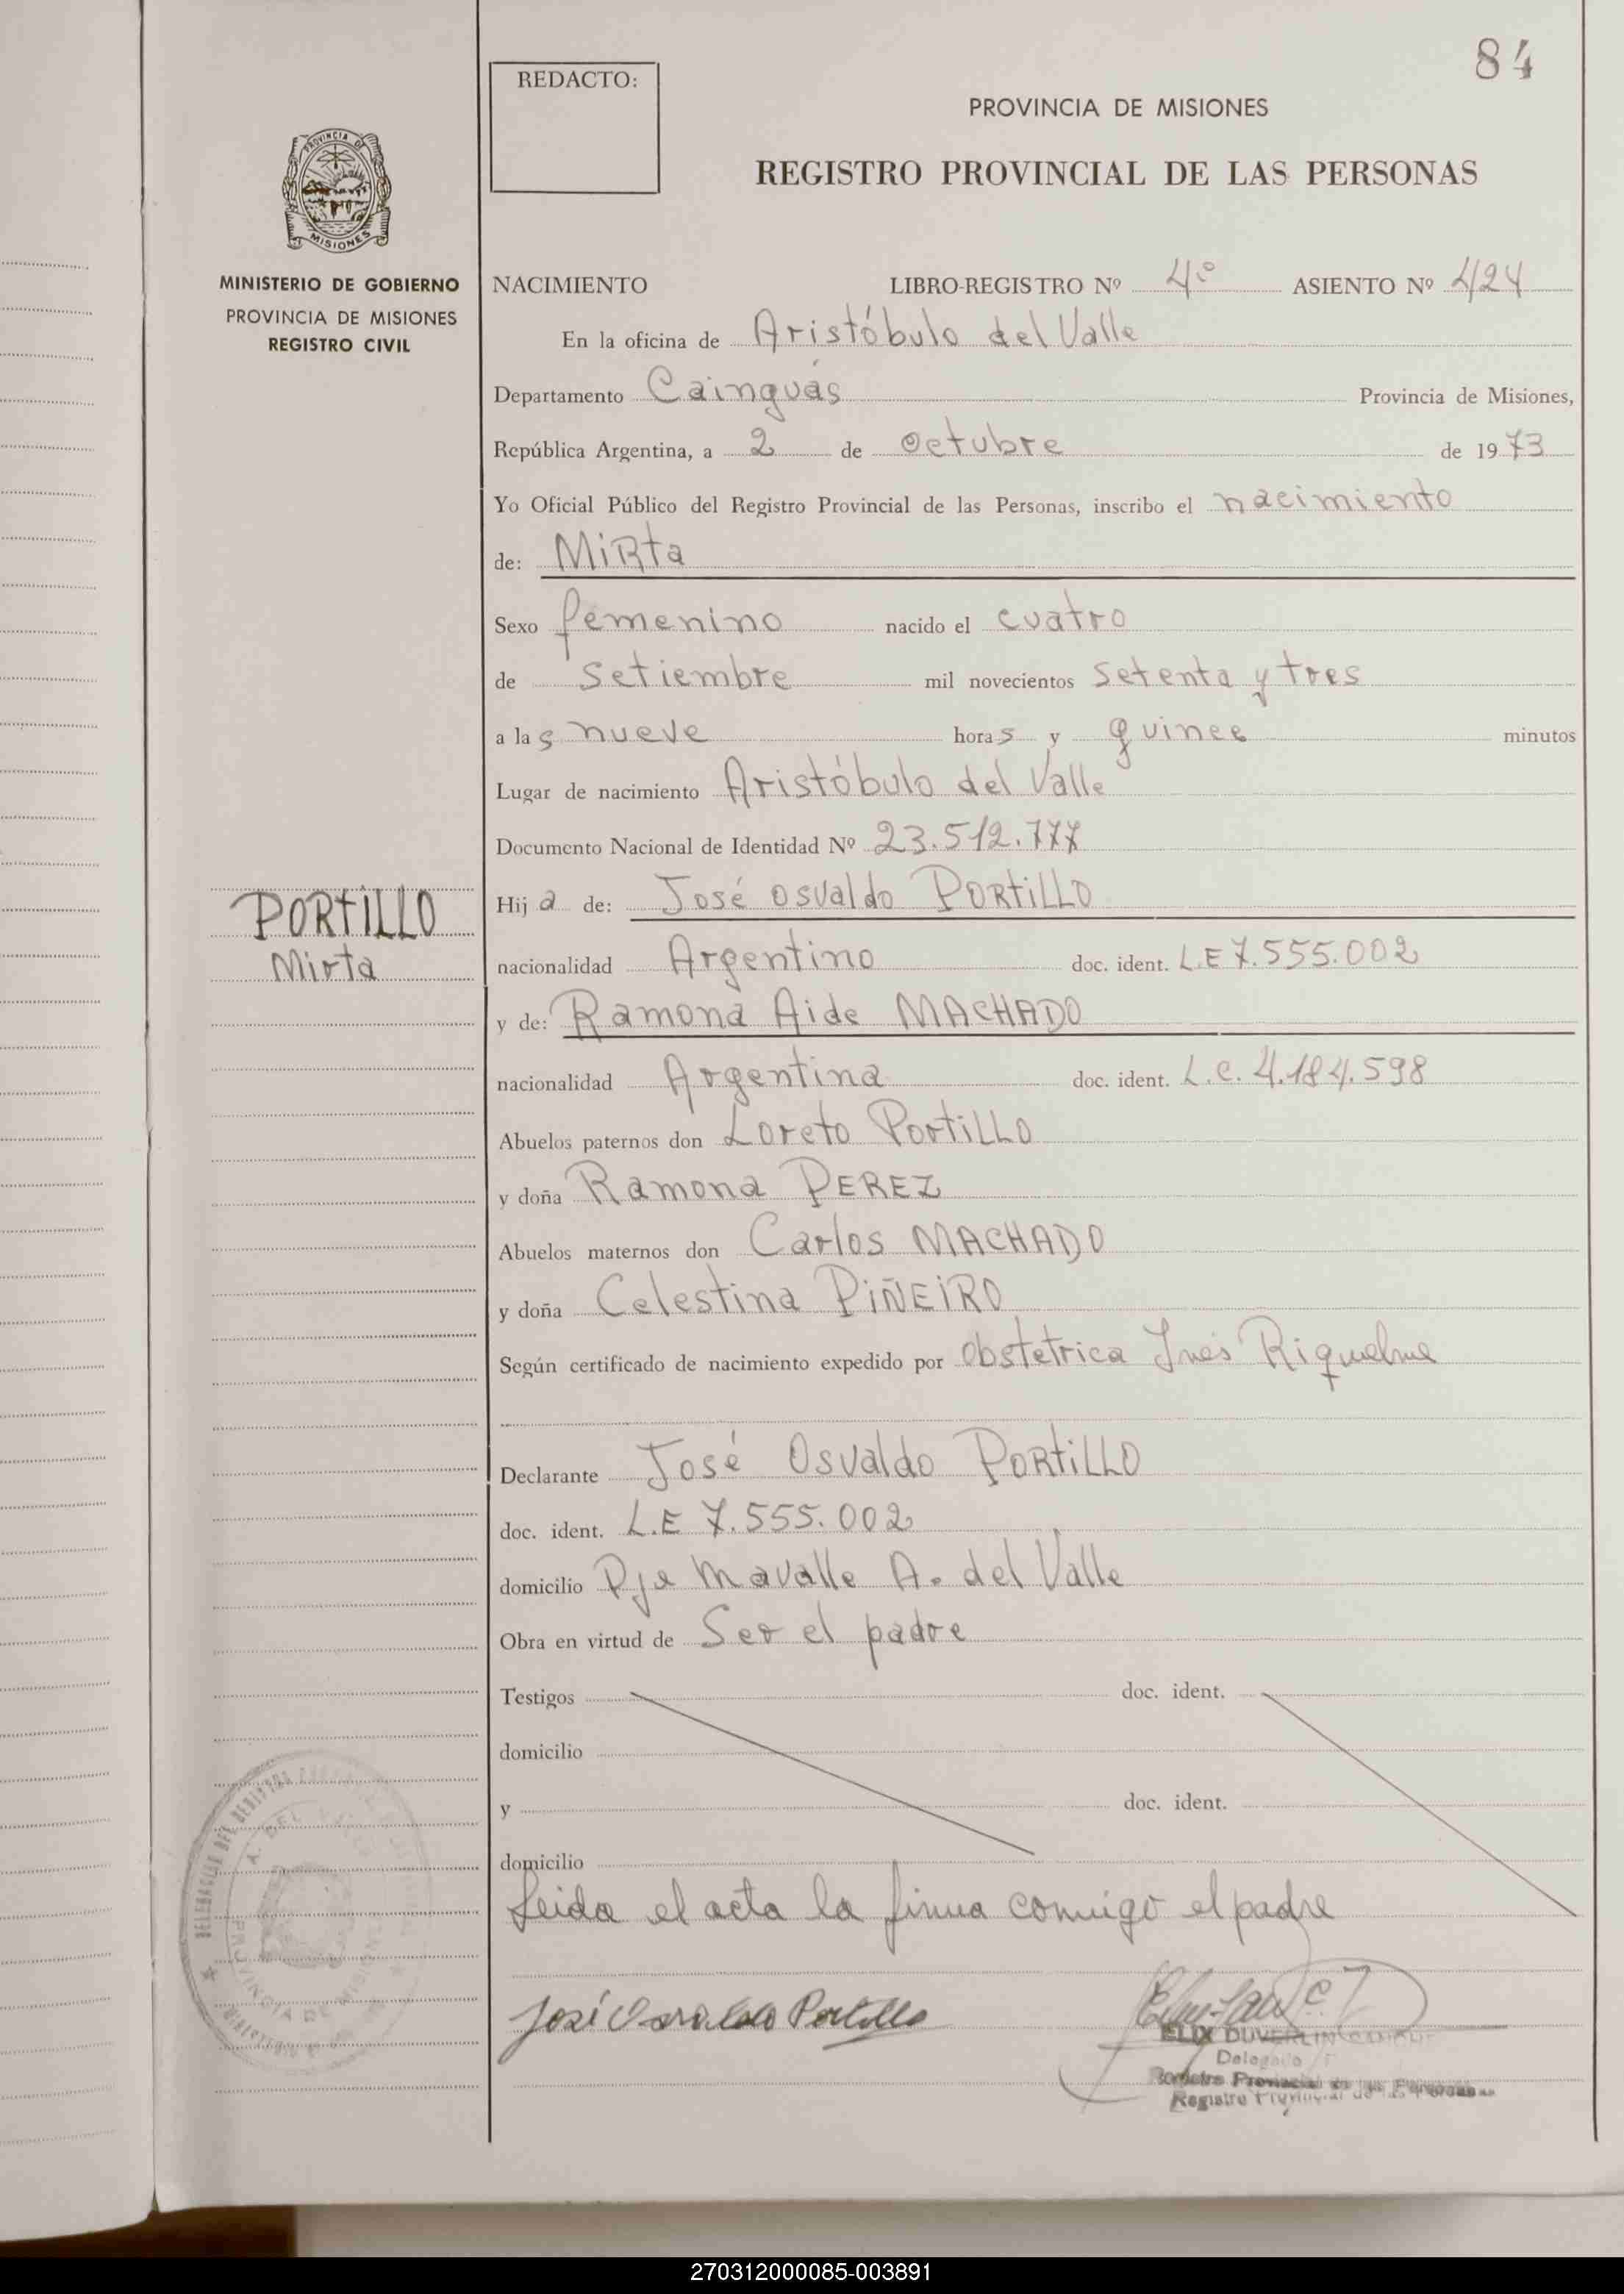 84
REDACTO:
PROVINCIA DE MISIONES
REGISTRO PROVINCIAL DE LAS PERSONAS
PROVINCIA DE
MISIONES
MINISTERIO DE GOBIERNO
PROVINCIA DE MISIONES
REGISTRO CIVIL
NACIMIENTO LIBRO-REGISTRO Nº 4º ASIENTO Nº 424
En la oficina de Aristóbulo del Valle
Departamento Cainguás Provincia de Misiones,
República Argentina, a 2 de octubre de 1973
Yo Oficial Público del Registro Provincial de las Personas, inscribo el nacimiento
de: MiRta
Sexo femenino nacido el cuatro
de setiembre mil novecientos setenta y tres
a las nueve horas y quince minutos
Lugar de nacimiento Aristóbulo del Valle
Documento Nacional de Identidad Nº 23.512.777
PORTiLLO
Mirta
Hija de: José Osvaldo PORTiLLO
nacionalidad Argentino doc. ident. L.E 7.555.002
y de: Ramona Aide MACHADO
nacionalidad Argentina doc. ident. L.C. 4.184.598
Abuelos paternos don Loreto PortiLLO
y doña Ramona PEREZ
Abuelos maternos don Carlos MACHADO
y doña Celestina PiÑEiRO
Según certificado de nacimiento expedido por obstetrica Inés Riquelme
Declarante José Osvaldo PORtiLLO
doc. ident. L.E 7.555.002
domicilio Pje Mavalle A. del Valle
Obra en virtud de Ser el padre
Testigos doc. ident.
domicilio
y doc. ident.
domicilio
Leida el acta la firma comigo el padre
José Osvaldo Portillo
Delegado
Registro Provincial de las Personas
Registro Provincial de las Personas
DELEGACION DEL REGISTRO
A. DEL VALLE
PROVINCIA DE MISIONES
270312000085-003891